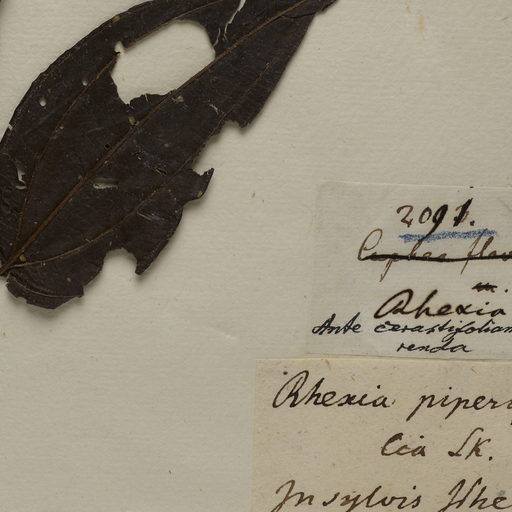 2091.
Cuphea flav
m.
Rhexia
Ante cerastifoliam
renda
Rhexia piperi
cia Sk.
In sylvis Ilhe